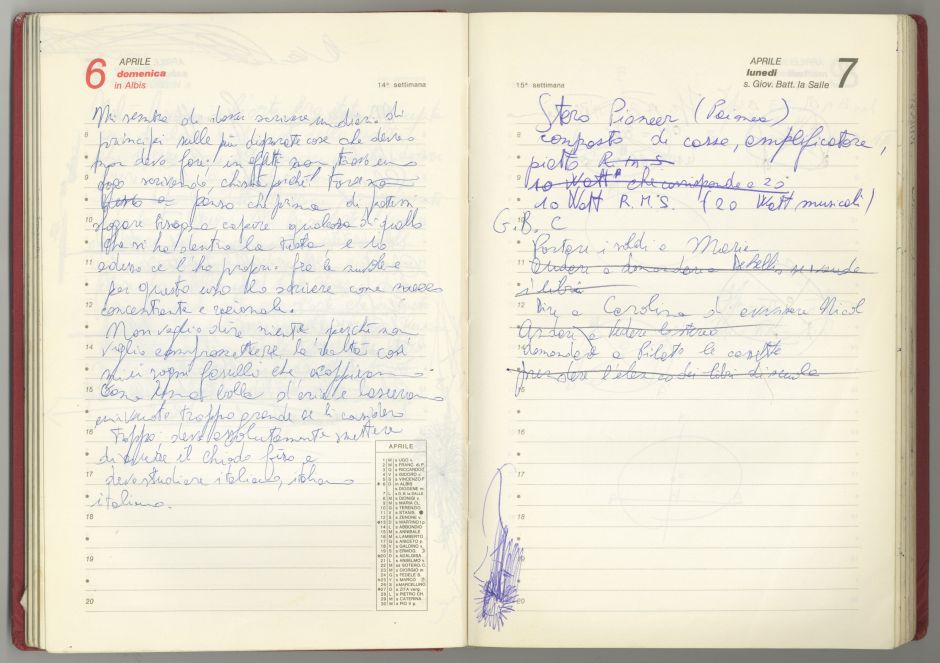 6
APRILE
domenica
in Albis
14ª settimana
Mi sembra di dover scrivere un diario di
principi sulle più disparate cose che devo e
non devo fare! in effetti non trovo uno
scrivendo, chissà perché!
penso che prima di potersi
sfogare bisogna capire qualcosa di quello
che si ha dentro la testa, e io
adesso ce l'ho proprio fra le nuvole e
per questo uno scrivere come
concentrante e razionale.
Non voglio dire niente perché non
voglio compromettere la realtà così
miei sogni fasulli che scoppieranno
come una bolla d'aria e lasceranno
un vuoto troppo grande se li considero
troppo devo assolutamente smettere
di avere il chiodo fisso e
devo studiare italiano, italiano
italiano.
8
9
10
11
12
13
14
15
16
17
18
19
20
APRILE
1 M s UGO v.
2 M s FRANC. di P.
3 G s RICCARDO
4 V s ISIDORO v.
5 S s VINCENZO F.
6 D in ALBIS
s DIOGENE m.
7 L s G.B. la SALLE
8 M s DIONIGI v.
9 M s MARIA CL.
10 G s TERENZIO
11 V s STANIS.
12 S s ZENONE v.
13 D s MARTINO I p.
14 L s ABBONDIO
15 M s ANNIBALE
16 M s LAMBERTO
17 G s ANICETO p.
18 V s GALDINO v.
19 S s ERMOG.
20 D s ADALGISA
21 L s ANSELMO v.
22 M ss SOTERO, C.
23 M s GIORGIO m.
24 G s FEDELE S.
25 V s MARCO
26 S s MARCELLINO
27 D s ZITA verg.
28 L s PIETRO CH.
29 M s CATERINA
30 M s PIO V p.
15ª settimana
APRILE
lunedì
s. Giov. Batt. la Salle
7
Stereo Pioneer (Paionea)
composto di casse, amplificatore,
piatto R.M.S
10 Watt che corrisponde a 20
10 Watt R.M.S. (20 Watt musicali)
G.B.C
Portare i soldi a Maria
Andare a domandare se vende
i libri
Dire a Carolina di avvisare Nicol
Andare a vedere lo stereo
domandare a Pilato le cassette
prendere l'elenco dei libri di scuola
8
9
10
11
12
13
14
15
16
17
18
19
20